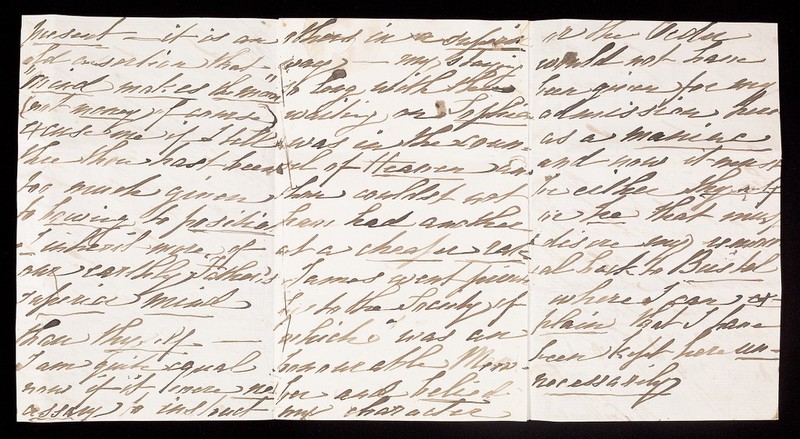 present – it is an
old assertion that
"Mind makes the man"
(not money of course)
excuse me if I tell
thee thou hast been
too much given
to bowing to position
I inherit more of
our earthly Father's
superior mind
than thyself —
I am quite equal
now if it were ne
cessary to instruct
others in a superior
way — my stay
so long with thee
waiting on Sophia
was in the coun-
sel of Heaven
thou couldst not
have had another
at a cheaper rate
James went
to the Society of
which "was an
honourable Mem-
ber and belied
my character
or the Order
would not have
been given for my
admission here
as a maniac
and now it must
be either thyself
or he that must
my remov
al back to Bristol
where I can ex
plain that I have
been kept here un-
necessarily